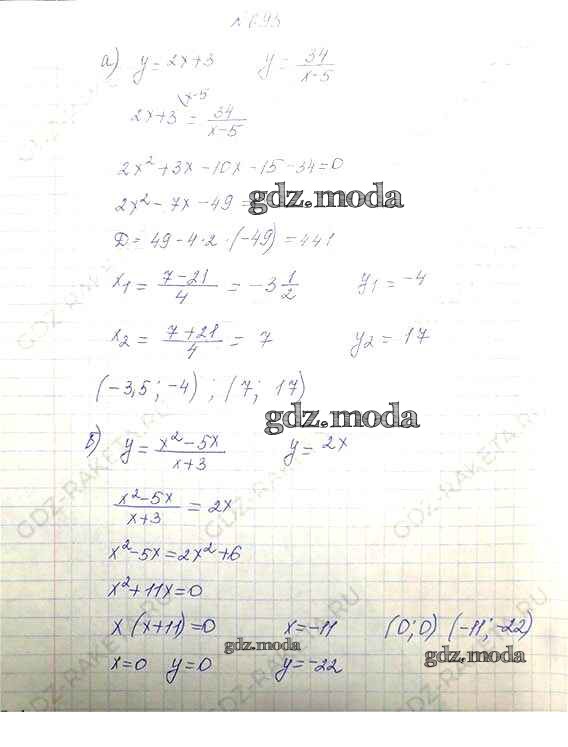 № 695
а) y = 2x+3 y = 34/(x-5)
2x+3 \x-5 = 34/(x-5)
2x² + 3x - 10x - 15 - 34 = 0
2x² - 7x - 49 =
gdz.moda
D = 49 - 4·2·(-49) = 441
x₁ = (7-21)/4 = -3 1/2 y₁ = -4
x₂ = (7+21)/4 = 7 y₂ = 17
(-3,5; -4) ; (7; 17)
gdz.moda
б) y = (x²-5x)/(x+3) y = 2x
(x²-5x)/(x+3) = 2x
x²-5x = 2x²+6
x²+11x = 0
x(x+11) = 0 x = -11 (0; 0) (-11; -22)
gdz.moda
gdz.moda
x = 0 y = 0 y = -22
GDZ-RAKETA.RU
GDZ-RAKETA.RU
GDZ-RAKETA.RU
GDZ-RAKETA.RU